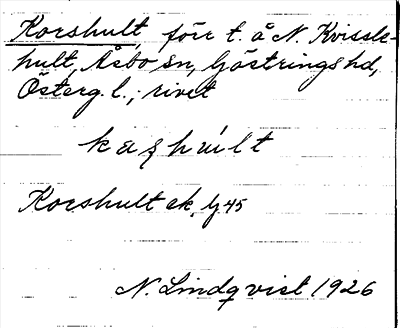 Korshult, förr t. å N. Korssle-
hult, Åsbo sn, Göstrings hd,
Österg. l.; rivet
Korshult ek. bl. 45
N. Lindqvist 1926